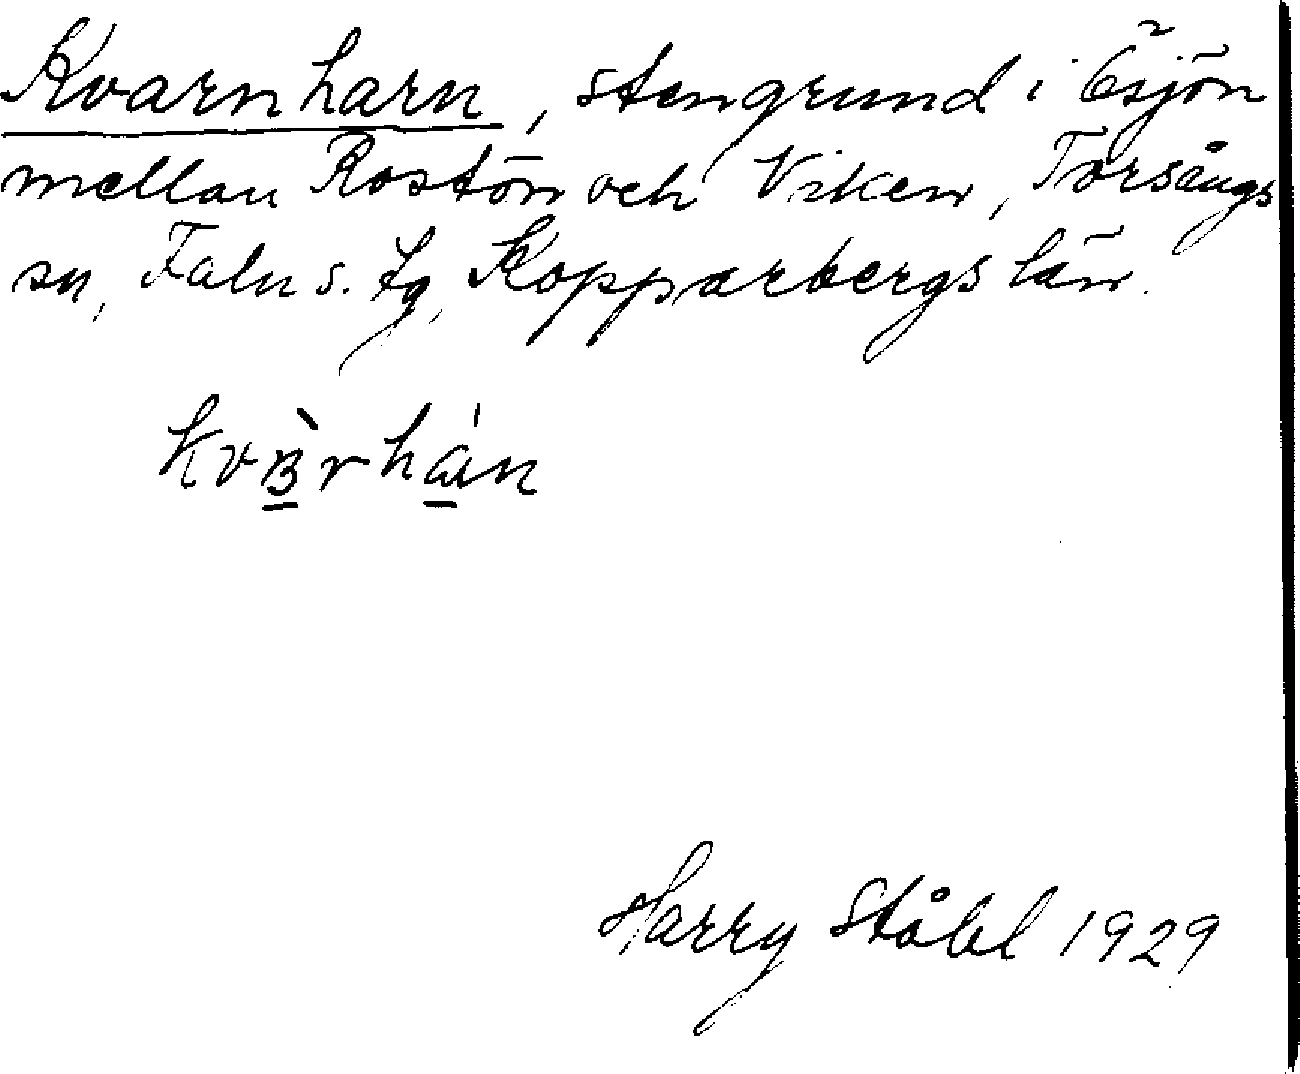 Kvarnharn, stengrund i Ösjön
mellan Rostön och Viken, Torsångs
sn, Falu s. tg, Kopparbergs län.
Harry Ståhl 1929